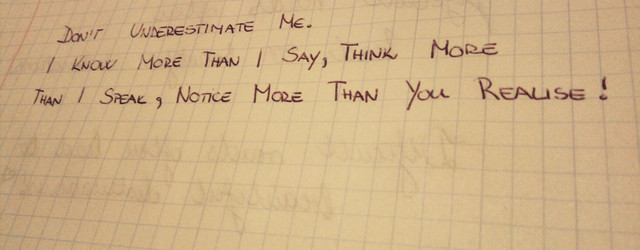 DON'T UNDERESTIMATE ME.
I KNOW MORE THAN I SAY, THINK MORE
THAN I SPEAK, NOTICE MORE THAN YOU REALISE!